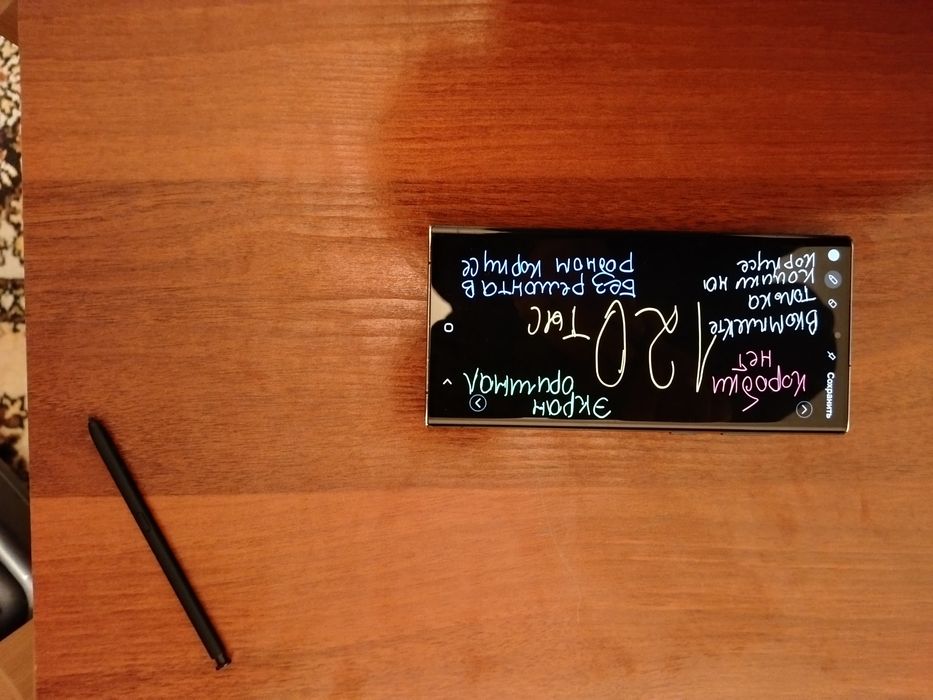 Сохранить
Коробки
нет
Экран
оригинал
120
тыс
Вкомплекте
толька
коцики на
корпусе
Без ремонта в
родном корпусе